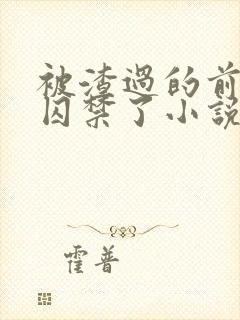 被渣過的前
囚禁了小說
霍普